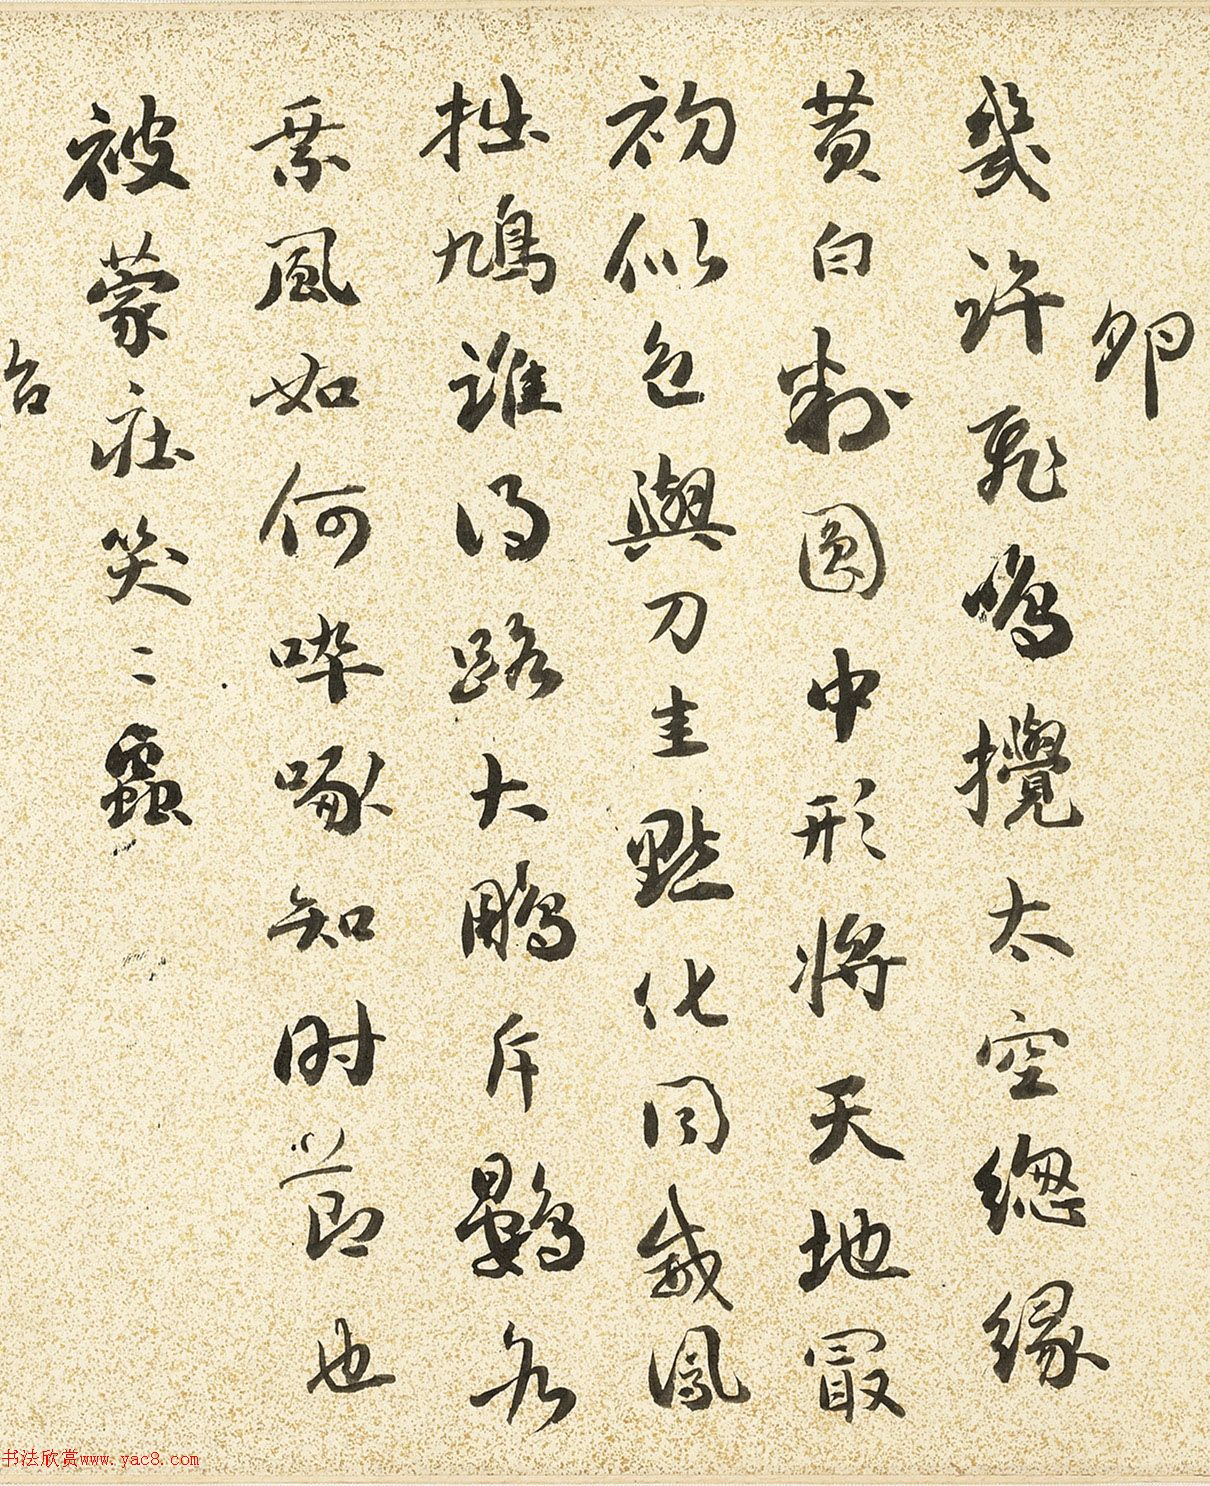 卵
幾許飛鳴攪太空總緣
黄白圓中形將天地冣
初似色與刀圭點化同威鳳
拙鳩誰得路大鵬斥鷃各
乘風如何啐啄知時節也
被蒙莊笑二蟲
书法欣赏www.yac8.com